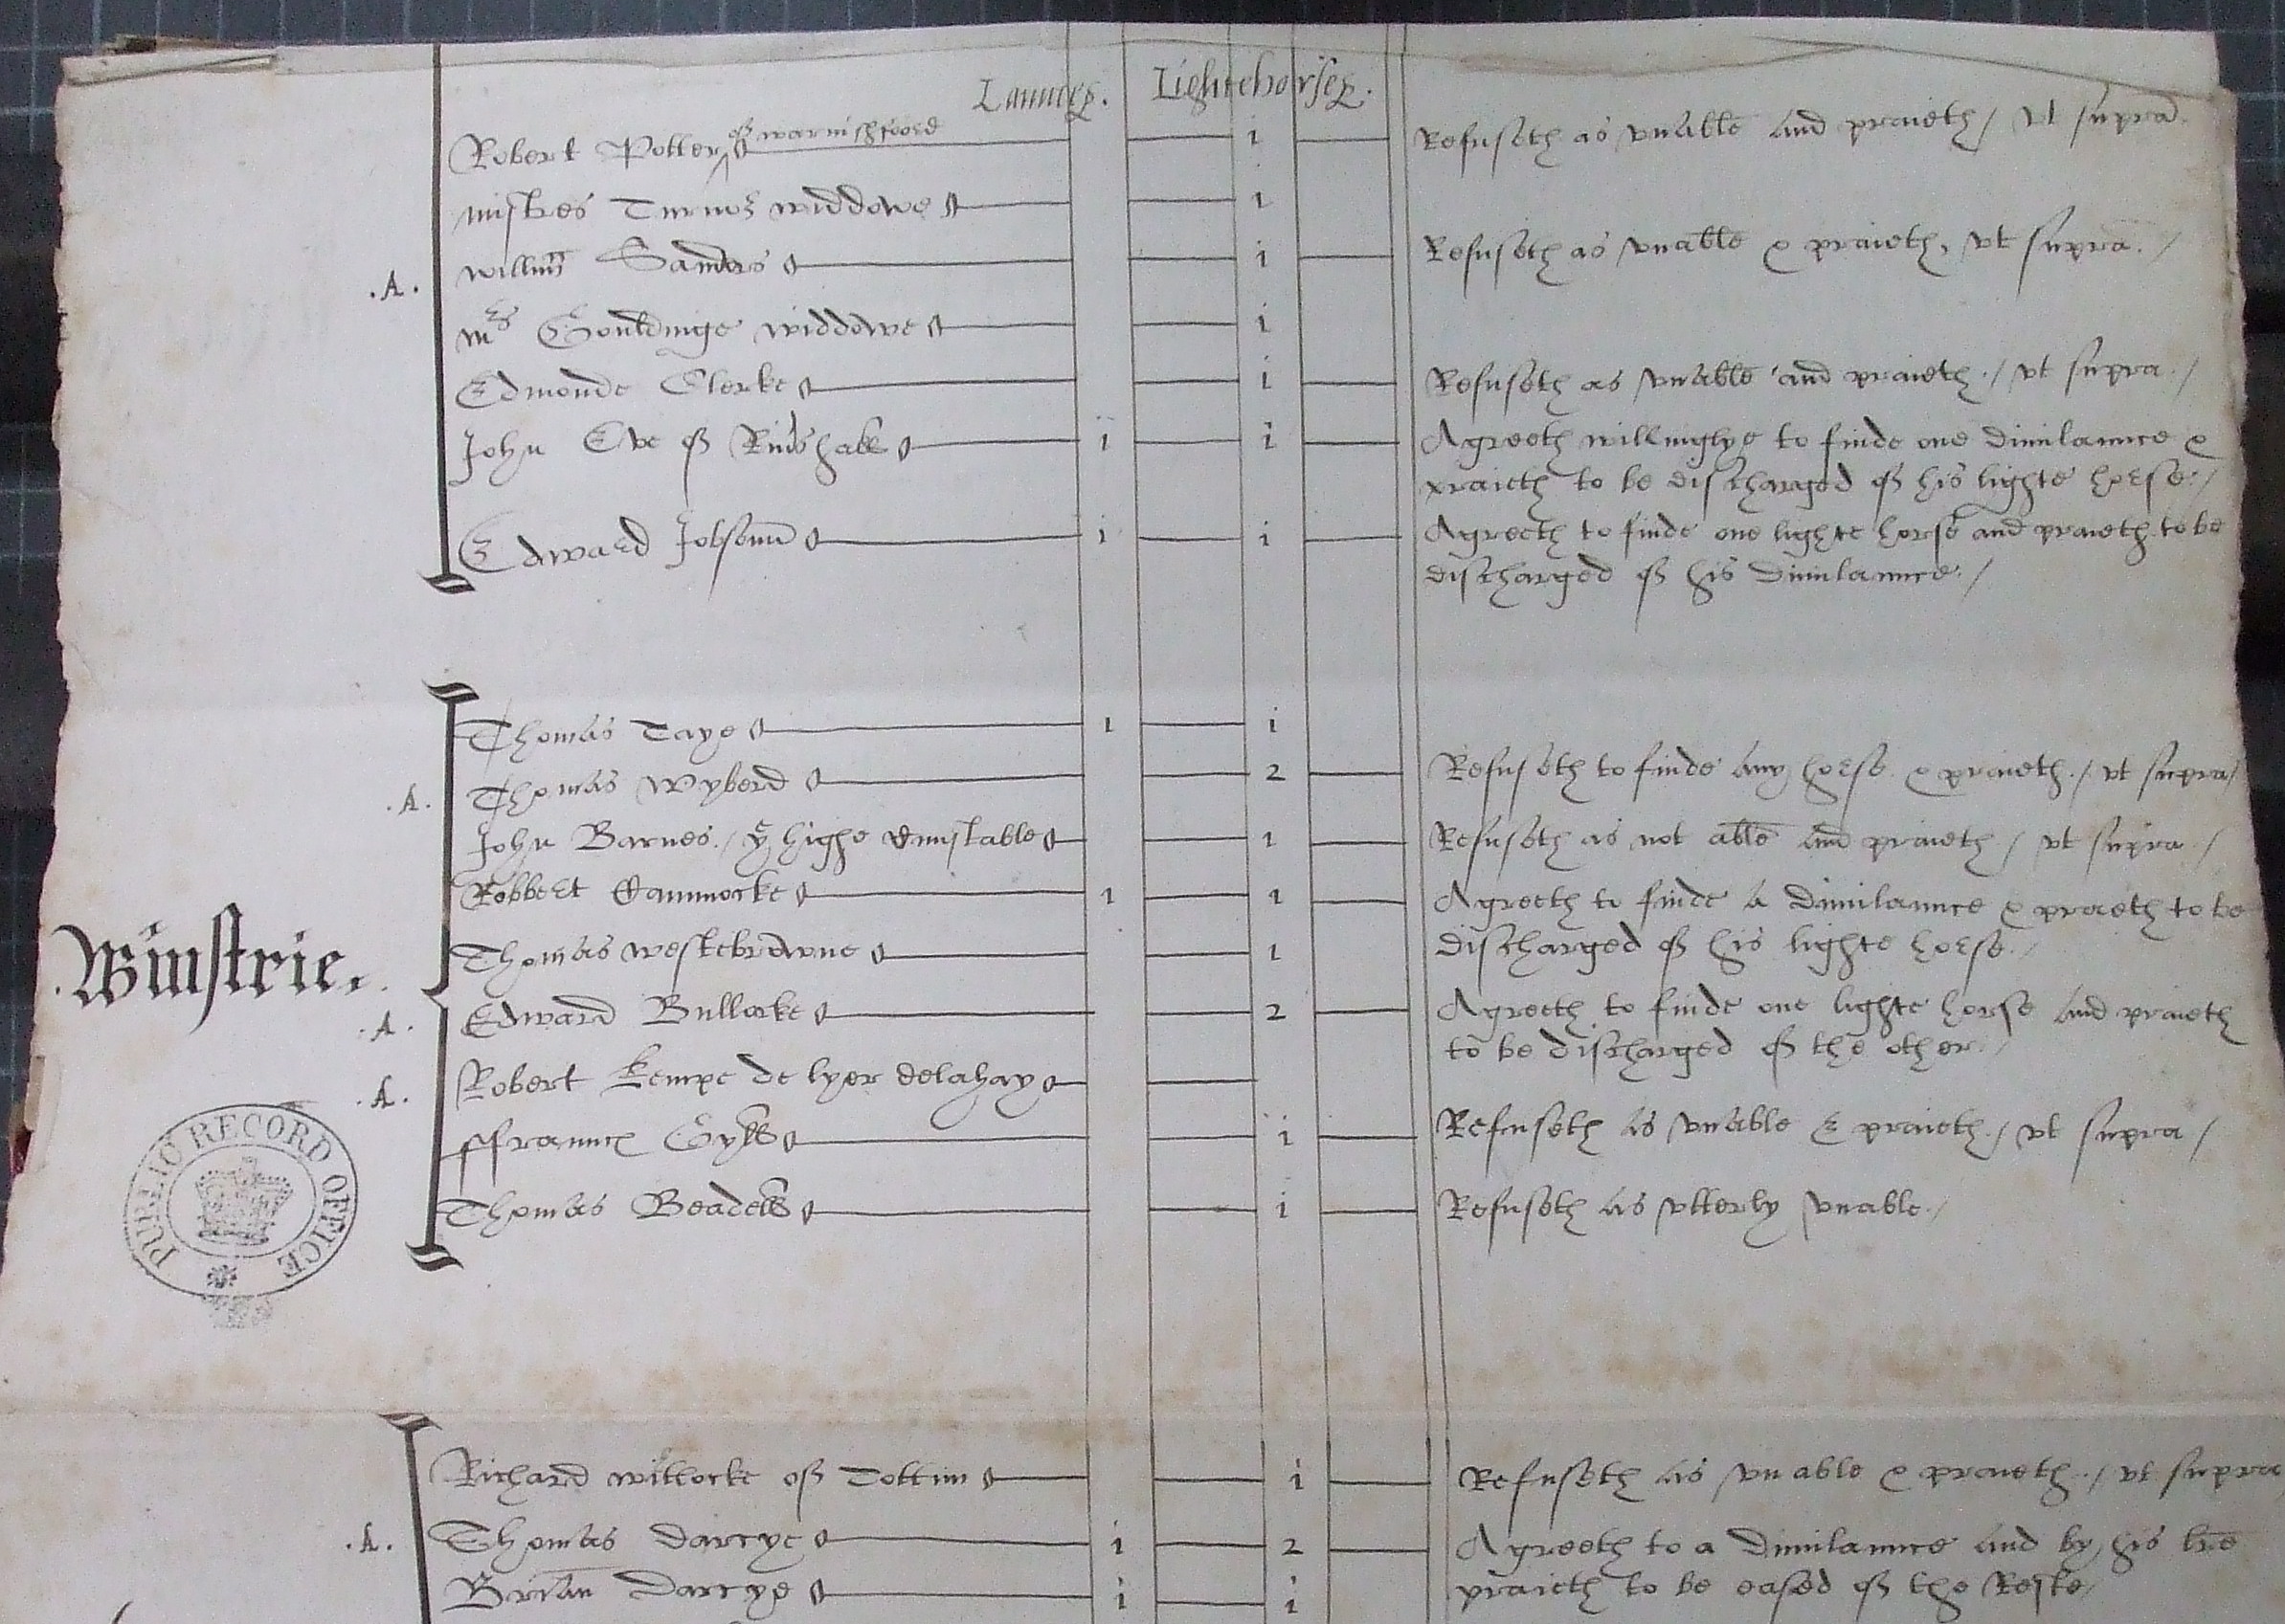 Launces. Lightehorses.
Robert Potter of warnishfoord i Refuseth as vnable and praieth / vt supra.
mistres Turnor widdowe i
.A. willm Sanders i Refuseth as vnable & praieth, vt supra. /
mrs Gouldinge widdowe i
Edmonde Clerke i Refuseth as vnable and praieth. / vt supra. /
John Eve of i i Agreeth willinglye to finde one dimilaunce &
praieth to be discharged of his lighte horse. /
Edward Jobsonn i i Agreeth to finde one lighte horse and praieth to be
discharged of his dimilaunce. /
Thomas Taye 1 i
.A. Thomas Wyberd 2 Refuseth to finde any horse & praieth. / vt supra /
John Barnes. / ye highe Cunstable 1 Refuseth as not able and praieth / vt supra. /
Robbert Cammocke 1 1 Agreeth to finde a Dimilaunce & praieth to be
Thomas westebrowne 1 discharged of his lighte horse. /
.Winstrie.
.A. Edward Bullocke 2 Agreeth to finde one lighte horse and praieth
to be discharged of the other. /
.A. Robert Kempe de lyer delahay
ffraunces Gylles i Refuseth as vnable & praieth. / vt supra /
Thomas Beadells i Refuseth as vtterly vnable. /
PUBLIC RECORD OFFICE
Richard wittocke of Tottim i Refuseth as vnable & praieth. / vt supra
.A. Thomas Darcye i 2 Agreeth to a Dimilaunce and by his lre
Brian Darcye i i praieth to be eased of the Reste /